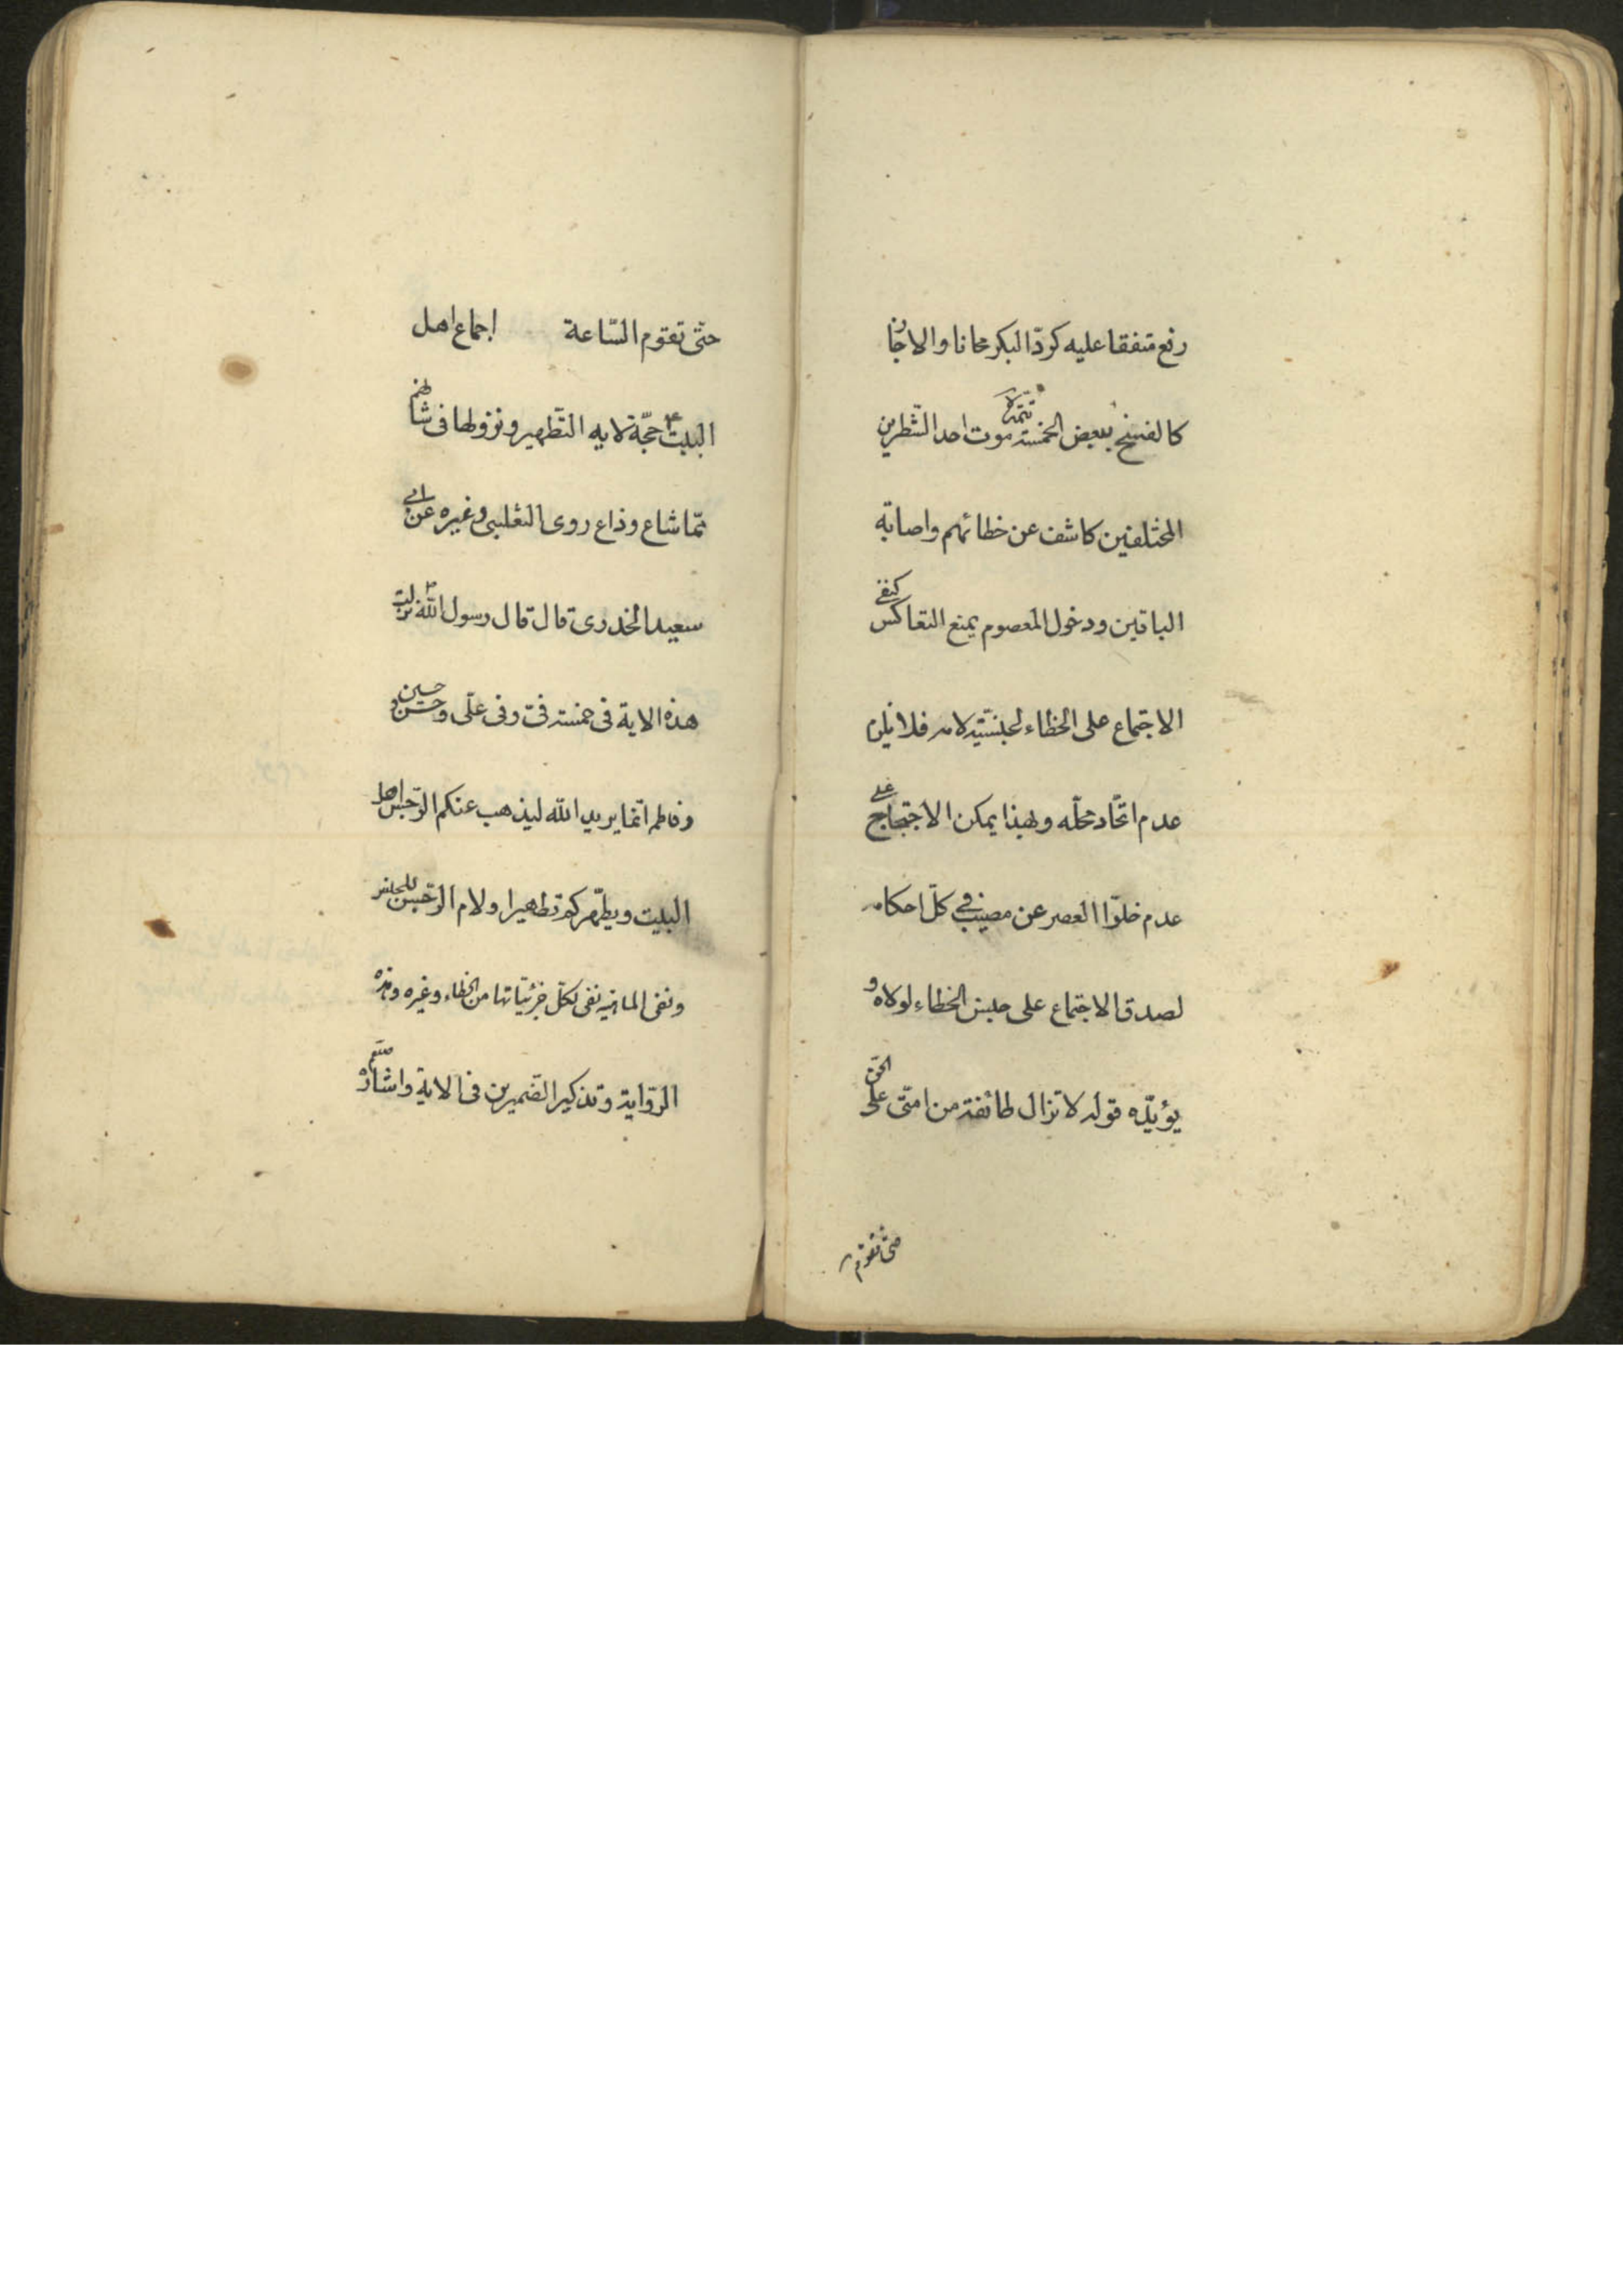 رفع متفقا عليه كردّ البكر مجانا والا جاز
كالفسخ ببعض الخمسة تتمة موت احد الشّطرين
المختلفين كاشف عن خطائهم واصابة
الباقين ودخول المعصوم يمنع التعاكس كنفى
الاجتماع على الخطاء لجنسيّة لامه فلا يلزم
عدم اتّحاد محلّه وبهذا يمكن الاحتجاج على
عدم خلوّا العصر عن مصيب في كلّ احكامه
لصدق الاجتماع على جنس الخطاء لولاه و
يؤيّده قوله لا تزال طائفة من امتى على الحق
حتى تقوم
حتّى تقوم السّاعة اجماع اهل
البيت ع حجّة لايه التّطهير ونزولها فى شانهم
ممّا شاع وذاع روى الثعلبى وغيره عن ابى
سعيد الخدرى قال قال رسول الله ص نزلت
هذه الاية فى خمسة فىّ وفى علّى وحسن وحسين
وفاطمه انّما يريد الله ليذهب عنكم الرّجس اهل
البيت ويطهّركم تطهيرا ولام الرّجس للجنس
ونفى الماهيه نفى لكلّ جزئيّاتها من الخطاء وغيره وهذه
الرّواية وتذكير الضميرين فى الاية واشارة